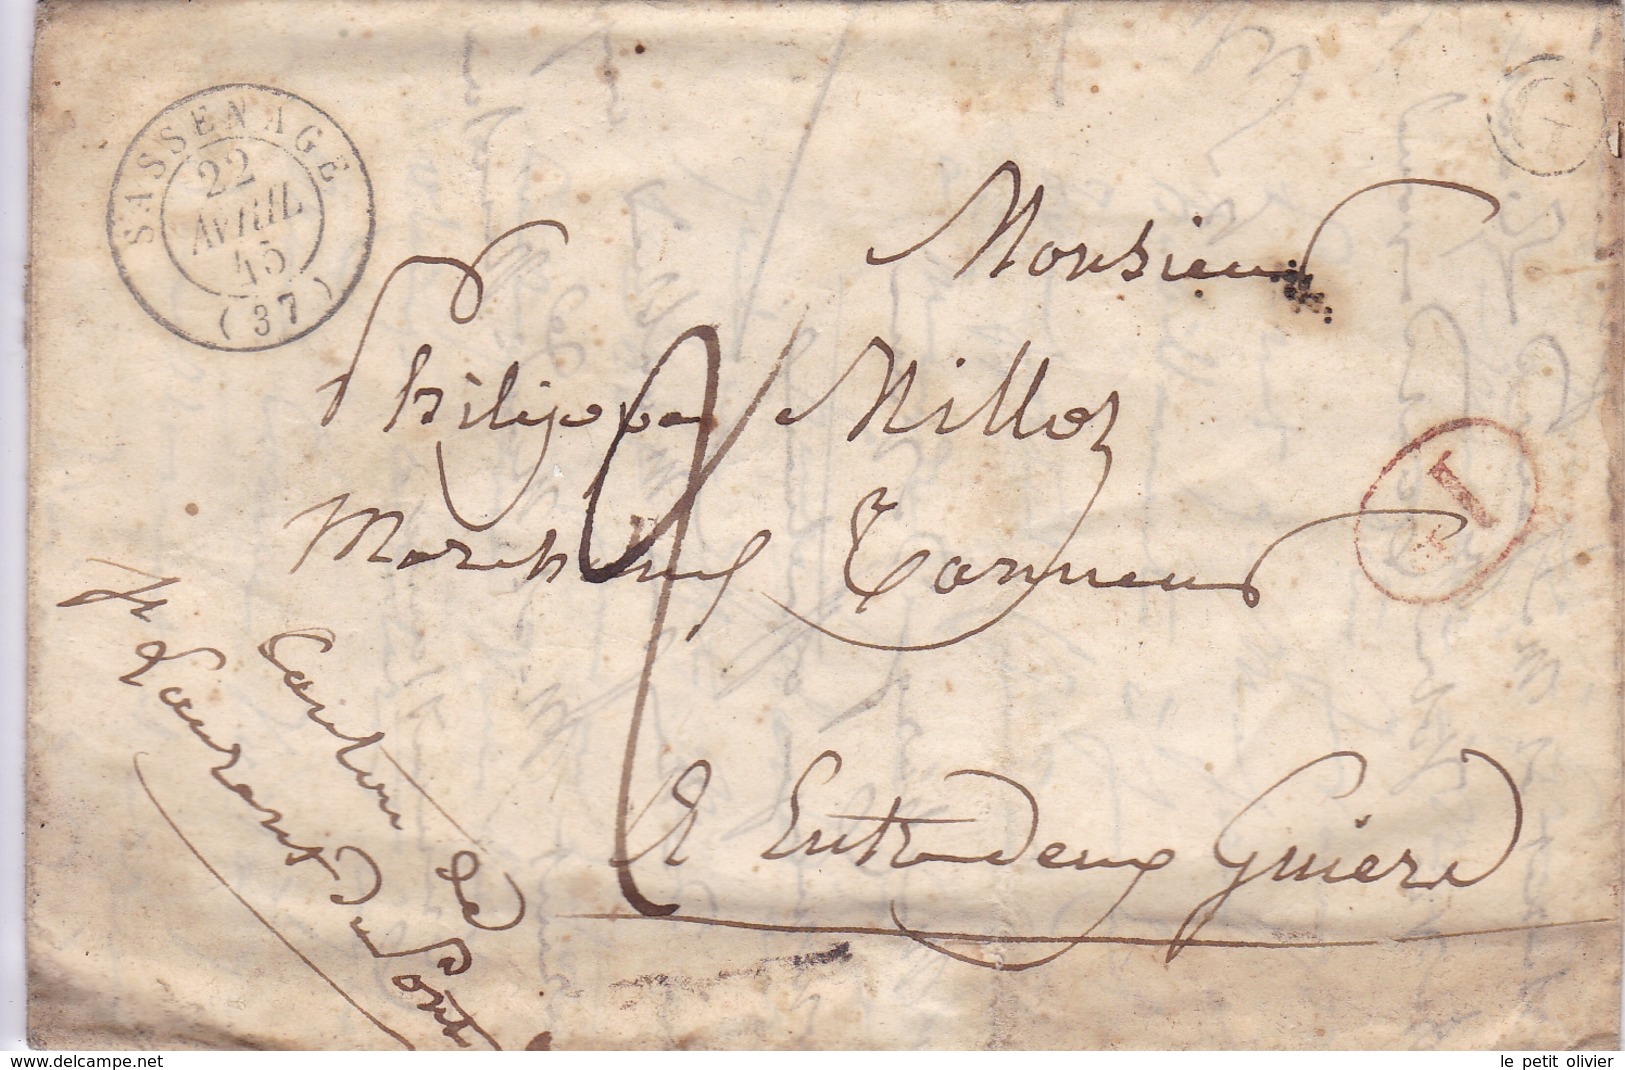 SASSENAGE
22
AVRIL
45
(37)
Monsieur
Philippe Milloz
Marchand Tanneur
A Entredeux Guiers
Canton de
St Laurent Du Pont
1
delcampe.net
le petit olivier